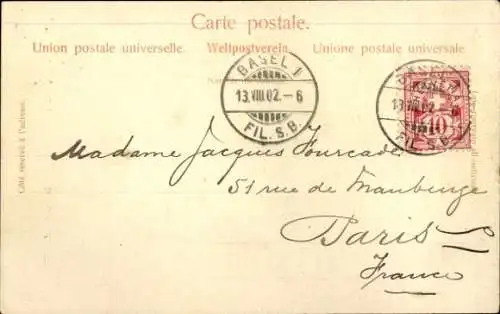 Carte postale.
Union postale universelle. Weltpostverein. Unione postale universale.
BASEL 1
13.VIII.02.–6
FIL. S.B.
BASEL 1
13.VIII.02.–6
FIL. S.B.
10
Côté réservé à l'adresse.
Madame Jacques Fourcade
51 rue de Maubeuge
Paris
France